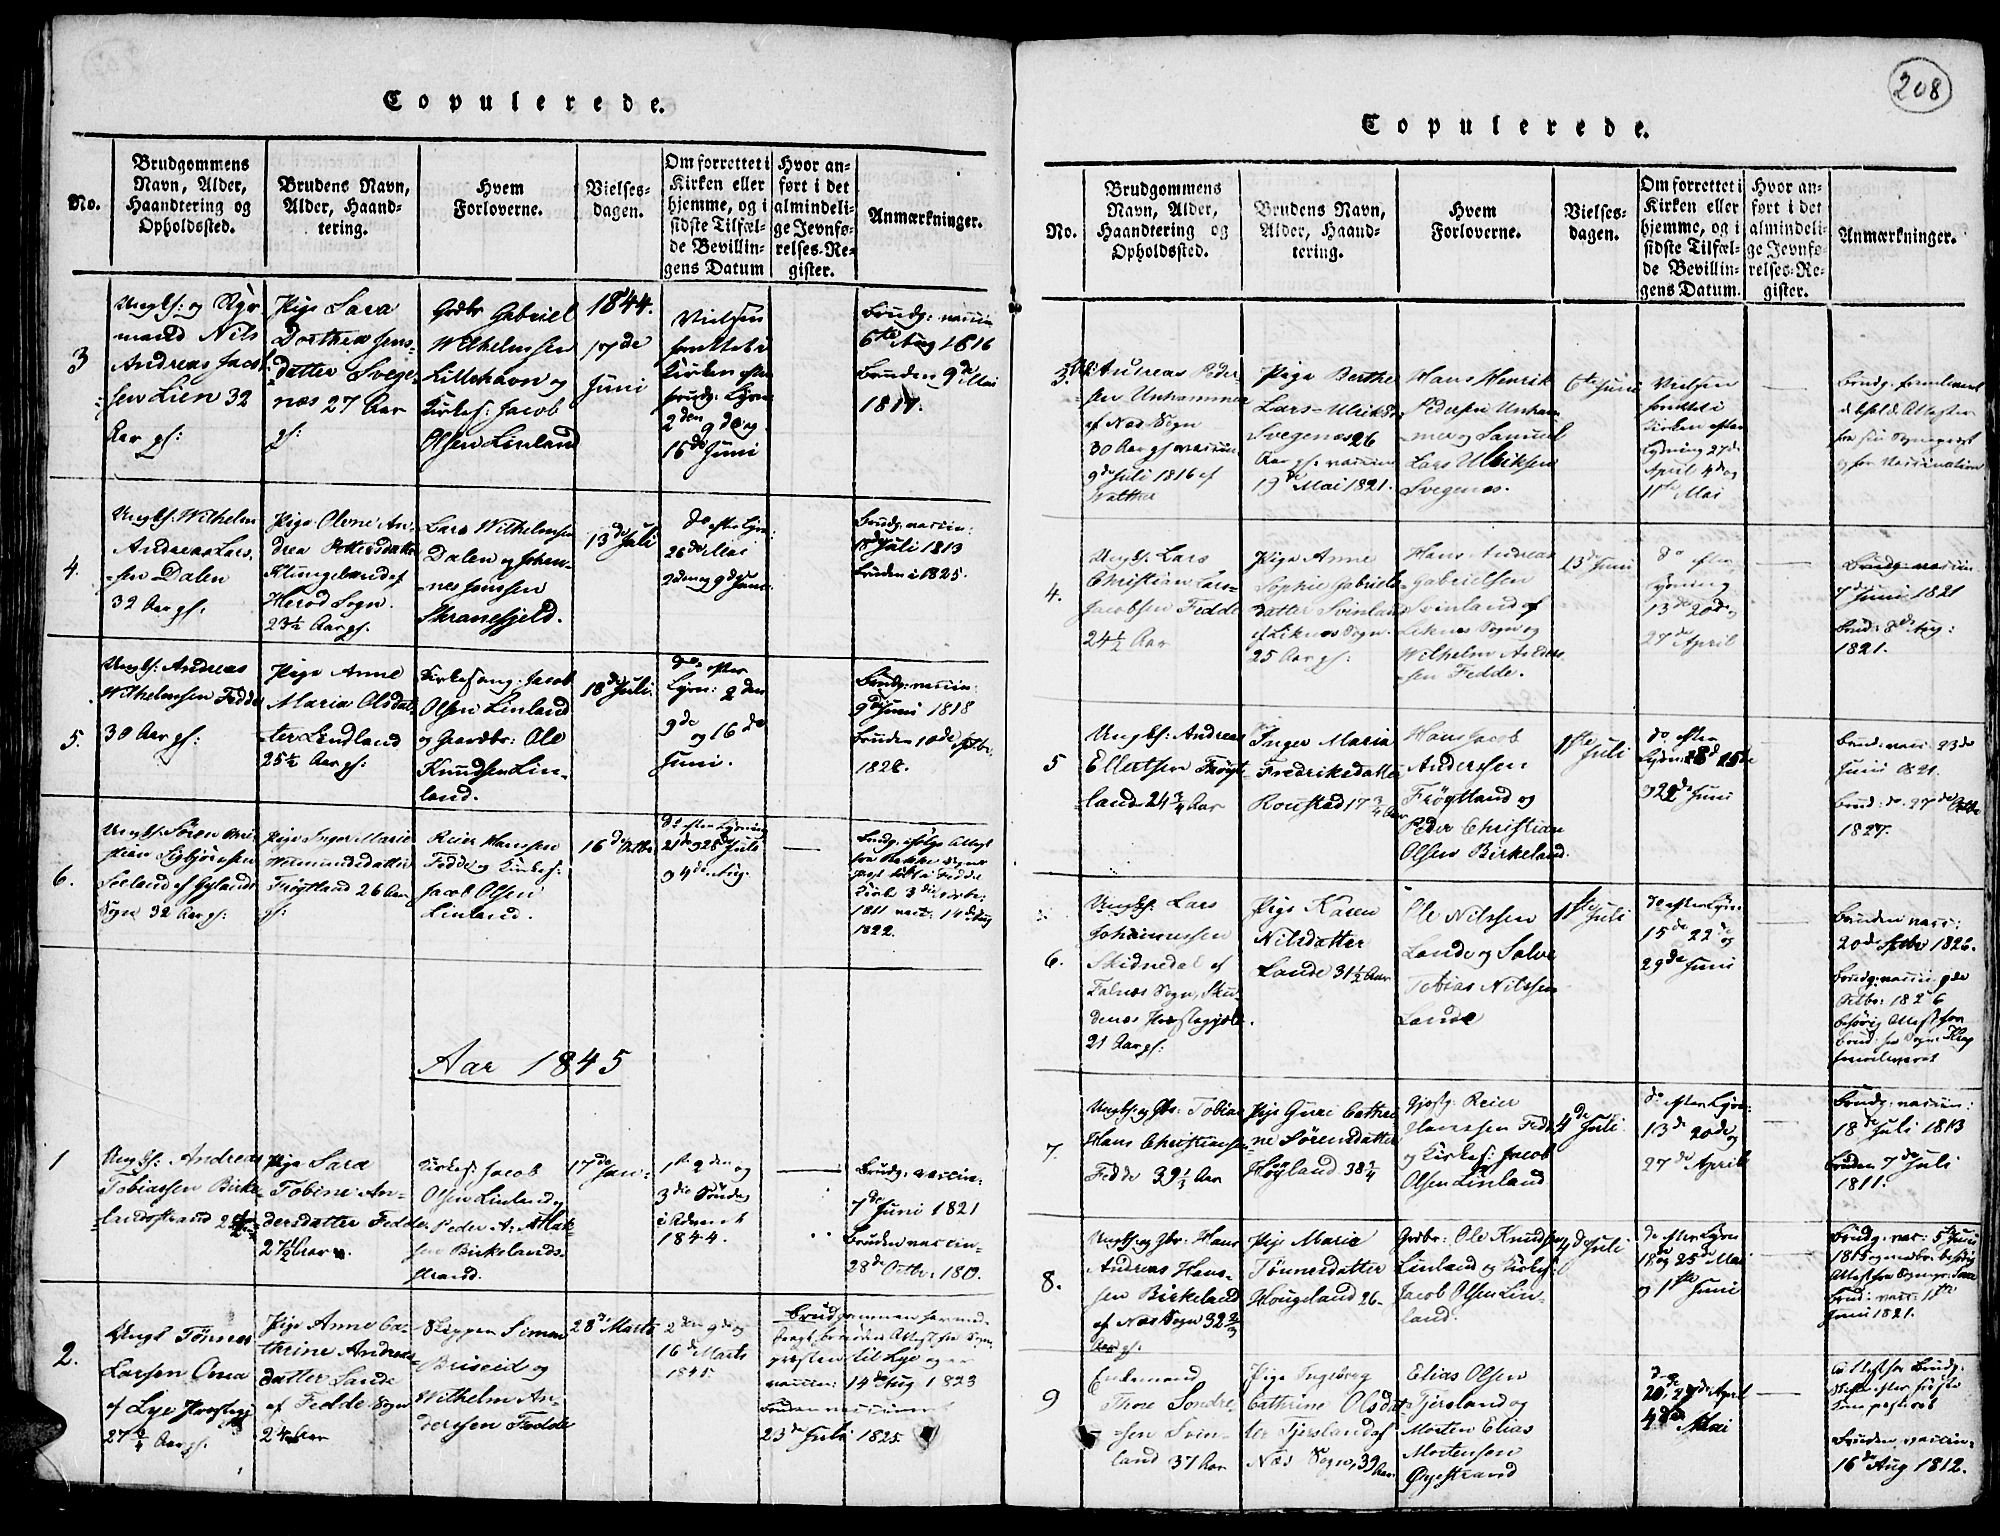 208
Copulerede.
No.
Brudgommens
Navn, Alder,
Haandtering og
Opholdssted.
Brudens Navn,
Alder, Haand-
tering.
Hvem
Forloverne.
Vielses-
dagen.
Om forrettet i
Kirken eller
hjemme, og i
sidste Tilfæl-
de Bevillin-
gens Datum
Hvor an-
ført i det
almindeli-
ge Jevnfø-
relses-Re-
gister.
Anmærkninger.
3
mand Nils
Andreas Jacob
sen Lien 32
Aar gl:
Pige Sara
Dorthea Jens-
datter Svege-
næs 27 Aar
gl:
Gabriel
Wilhelmsen
Lillehavn og
Kirkes: Jacob
Olsen Linland
1844.
17de
Juni
Vielsen
Kirken efter
2den 9de og
16de Juni
Brudg: vaccin
6te Aug 1816
Bruden 9de Mai
1817.
4.
Ungk: Wilhelm
Andreas Lars-
sen Dalen
32 Aar gl:
Pige Olene An-
drea Pettersdatter
Klungeland af
Herod Sogn.
23½ Aar gl.
Lars Wilhelmsen
Dalen og Johan-
nes Jonssen
Skranefjeld.
13de Juli
do efter Lysn:
26de Mai
2den og 9de Juni
Brudg: vaccin:
18de Juli 1813
Bruden i 1825.
5.
Ungk: Andreas
Wilhelmsen Fedde
30 Aar gl:
Pige Anne
Maria Olsdat-
ter Lindland
25½ Aar gl:
Kirkesang: Jacob
Olsen Linland
og Gaardbr: Ole
Knudsen Lin-
land.
18de Juli
do efter
Lysn: 2den
9de
og 16de
Juni.
Brudg: vaccin:
9de Juni 1818
Bruden 10de Septbr
6.
Ungk: Søren Chri-
stian Sigbjørnsen
Seeland af Gylands
Sogn 32 Aar gl:
Pige Inger Marie
Frøytland 26 Aar
gl:
Reier Hanssen
Fedde og Kirkes:
Jacob Olsen
Linland.
16de Octbr
do efter Lysning
21de 28de Juli
og 4de Aug.
1811 vacc: 14de Aug
1822.
Aar 1845
1
Ungk: Andreas
Tobiassen Birke-
landsstrand
Pige Sara
Tobine An-
dersdatter Fedde
27½ Aar
Kirkes: Jacob
Olsen Linland og
Peder A: Aslak-
sen Birkelands-
strand.
17de
Jan-
1ste 2den og
3die Søndag
i Advent
1844.
Brudg: vaccin:
7de Juni 1821
Bruden vaccin-
28de Octbr: 1810.
2.
Ungk Tønnes
Larsen Oma
af Lye Præstegj
27¾ Aar gl.
Pige Anne Ca-
thrine Andreas-
datter Lande
af Fedde Sogn
24 Aar
Skipper Simon
Briseid og
Wilhelm An-
derssen Fedde
28de Marts
2den 9de og
16de Marts
1845
Brudgommen har med-
præsten til Lye og er
vaccin: 14de Aug 1823
Bruden vaccineret
23de Juli 1825.
Copulerede.
No.
Brudgommens
Navn, Alder,
Haandtering og
Opholdssted.
Brudens Navn,
Alder, Haand-
tering.
Hvem
Forloverne.
Vielses-
dagen.
Om forrettet i
Kirken eller
hjemme, og i
sidste Tilfæl-
de Bevillin-
gens Datum.
Hvor an-
ført i det
almindeli-
ge Jevnfø-
relses-Re-
gister.
Anmærkninger.
3.
Ungk: Andreas Peder-
sen Unhammer
af Næs Sogn
30 Aar gl vaccin
9de Juli 1816 af
Walther
Pige Berthe
Lars-Ulriksd:
Svegenæs 26
Aar gl: vaccin
19de Mai 1821.
Hans Henrik
Pedersen Unham-
mer og Samuel
Lars Ulriksen
Svegenæs.
6te Juni
Vielsen
Kirken efter
Lysning 27de
April 4de og
11te Mai
og for Vaccination
4.
Ungk: Lars
Christian Lars-
Jacobsen Fedde
24½ Aar
Pige Anne
Sophie Gabriels-
datter Svinland
af Liknes Sogn.
25 Aar gl:
Hans Andreas
Gabrielsen
Svinland af
Liknes Sogn og
Wilhelm Anders-
sen Fedde.
13de Juni
do efter
Lysning
13de 20de og
27de April
Brudg: vaccin:
7de Juni 1821
Brud: 8de Aug:
1821.
5
Ungk: Andreas
Ellertsen Frøyt-
land 24¾ Aar
Inger Maria
Fredriksdatter
Roustad 17¾ Aar
Hans Jacob
Anderssen
Frøytland og
Peder Christian
Olsen Birkeland.
1ste Juli
do efter
Lysn: 18de 15de
og 22de Juni
Brudg: vacc: 23de
Juni 1821.
Brud: do. 27de Octbr
1827.
6.
Ungk: Lars
Johannessen
Skidnedal af
Falnæs Sogn, Sku-
denæs Præstegjeld.
21 Aar gl:
Pige Karen
Nilsdatter
Lande 31½ Aar
Ole Nilssen
Lande og Salve
Tobias Nilssen
Lande
1ste Juli
do efter Lysn
15de 22de og
29de Juni
Bruden vacc:
20de Septbr 1826.
Brudg: vaccin 9de
Octbr: 1826
behørig Attest for
7.
Ungk: og Gbr: Tobias
Hans Christianssen
Fedde 39⅓ Aar
Pige Guri Cathri
ne Sørensdatter
Høyland 38¾
Gjæstg: Reier
Hanssen Fedde
og Kirkes: Jacob
Olsen Linland
4de Juli
do efter Lysn:
13de 20de og
27de April
Brudg: vaccin:
18de Juli 1813
Bruden 7de Juli
1811.
8.
Ungk: og Gbr: Hans
Andreas Hans-
sen Birkeland
af Næs Sogn 32⅔
Aar gl.
Pige Marie
Tønnesdatter
Hougeland 26-
Grdbr: Ole Knudsen
Linland og Kirkes:
Jacob Olsen Lin-
land.
4de Juli
do efter Lysn
18de og 25de Mai
og 1ste Juni
Brudg: vac: 5 Juni
Juni 1821.
9
Enkemand
Thore Sondre-
sen Svin-
land 37 Aar
Pige Ingeborg
Cathrine Olsdat
ter Tjersland af
Næs Sogn, 39 Aar
Elias Olsen
Tjersland og
Morten Elias
Mortensen
Øyestrand
do
20de 27de April
4de Mai
Attest for Brudg:
Bruden vaccin-
16de Aug 1812.